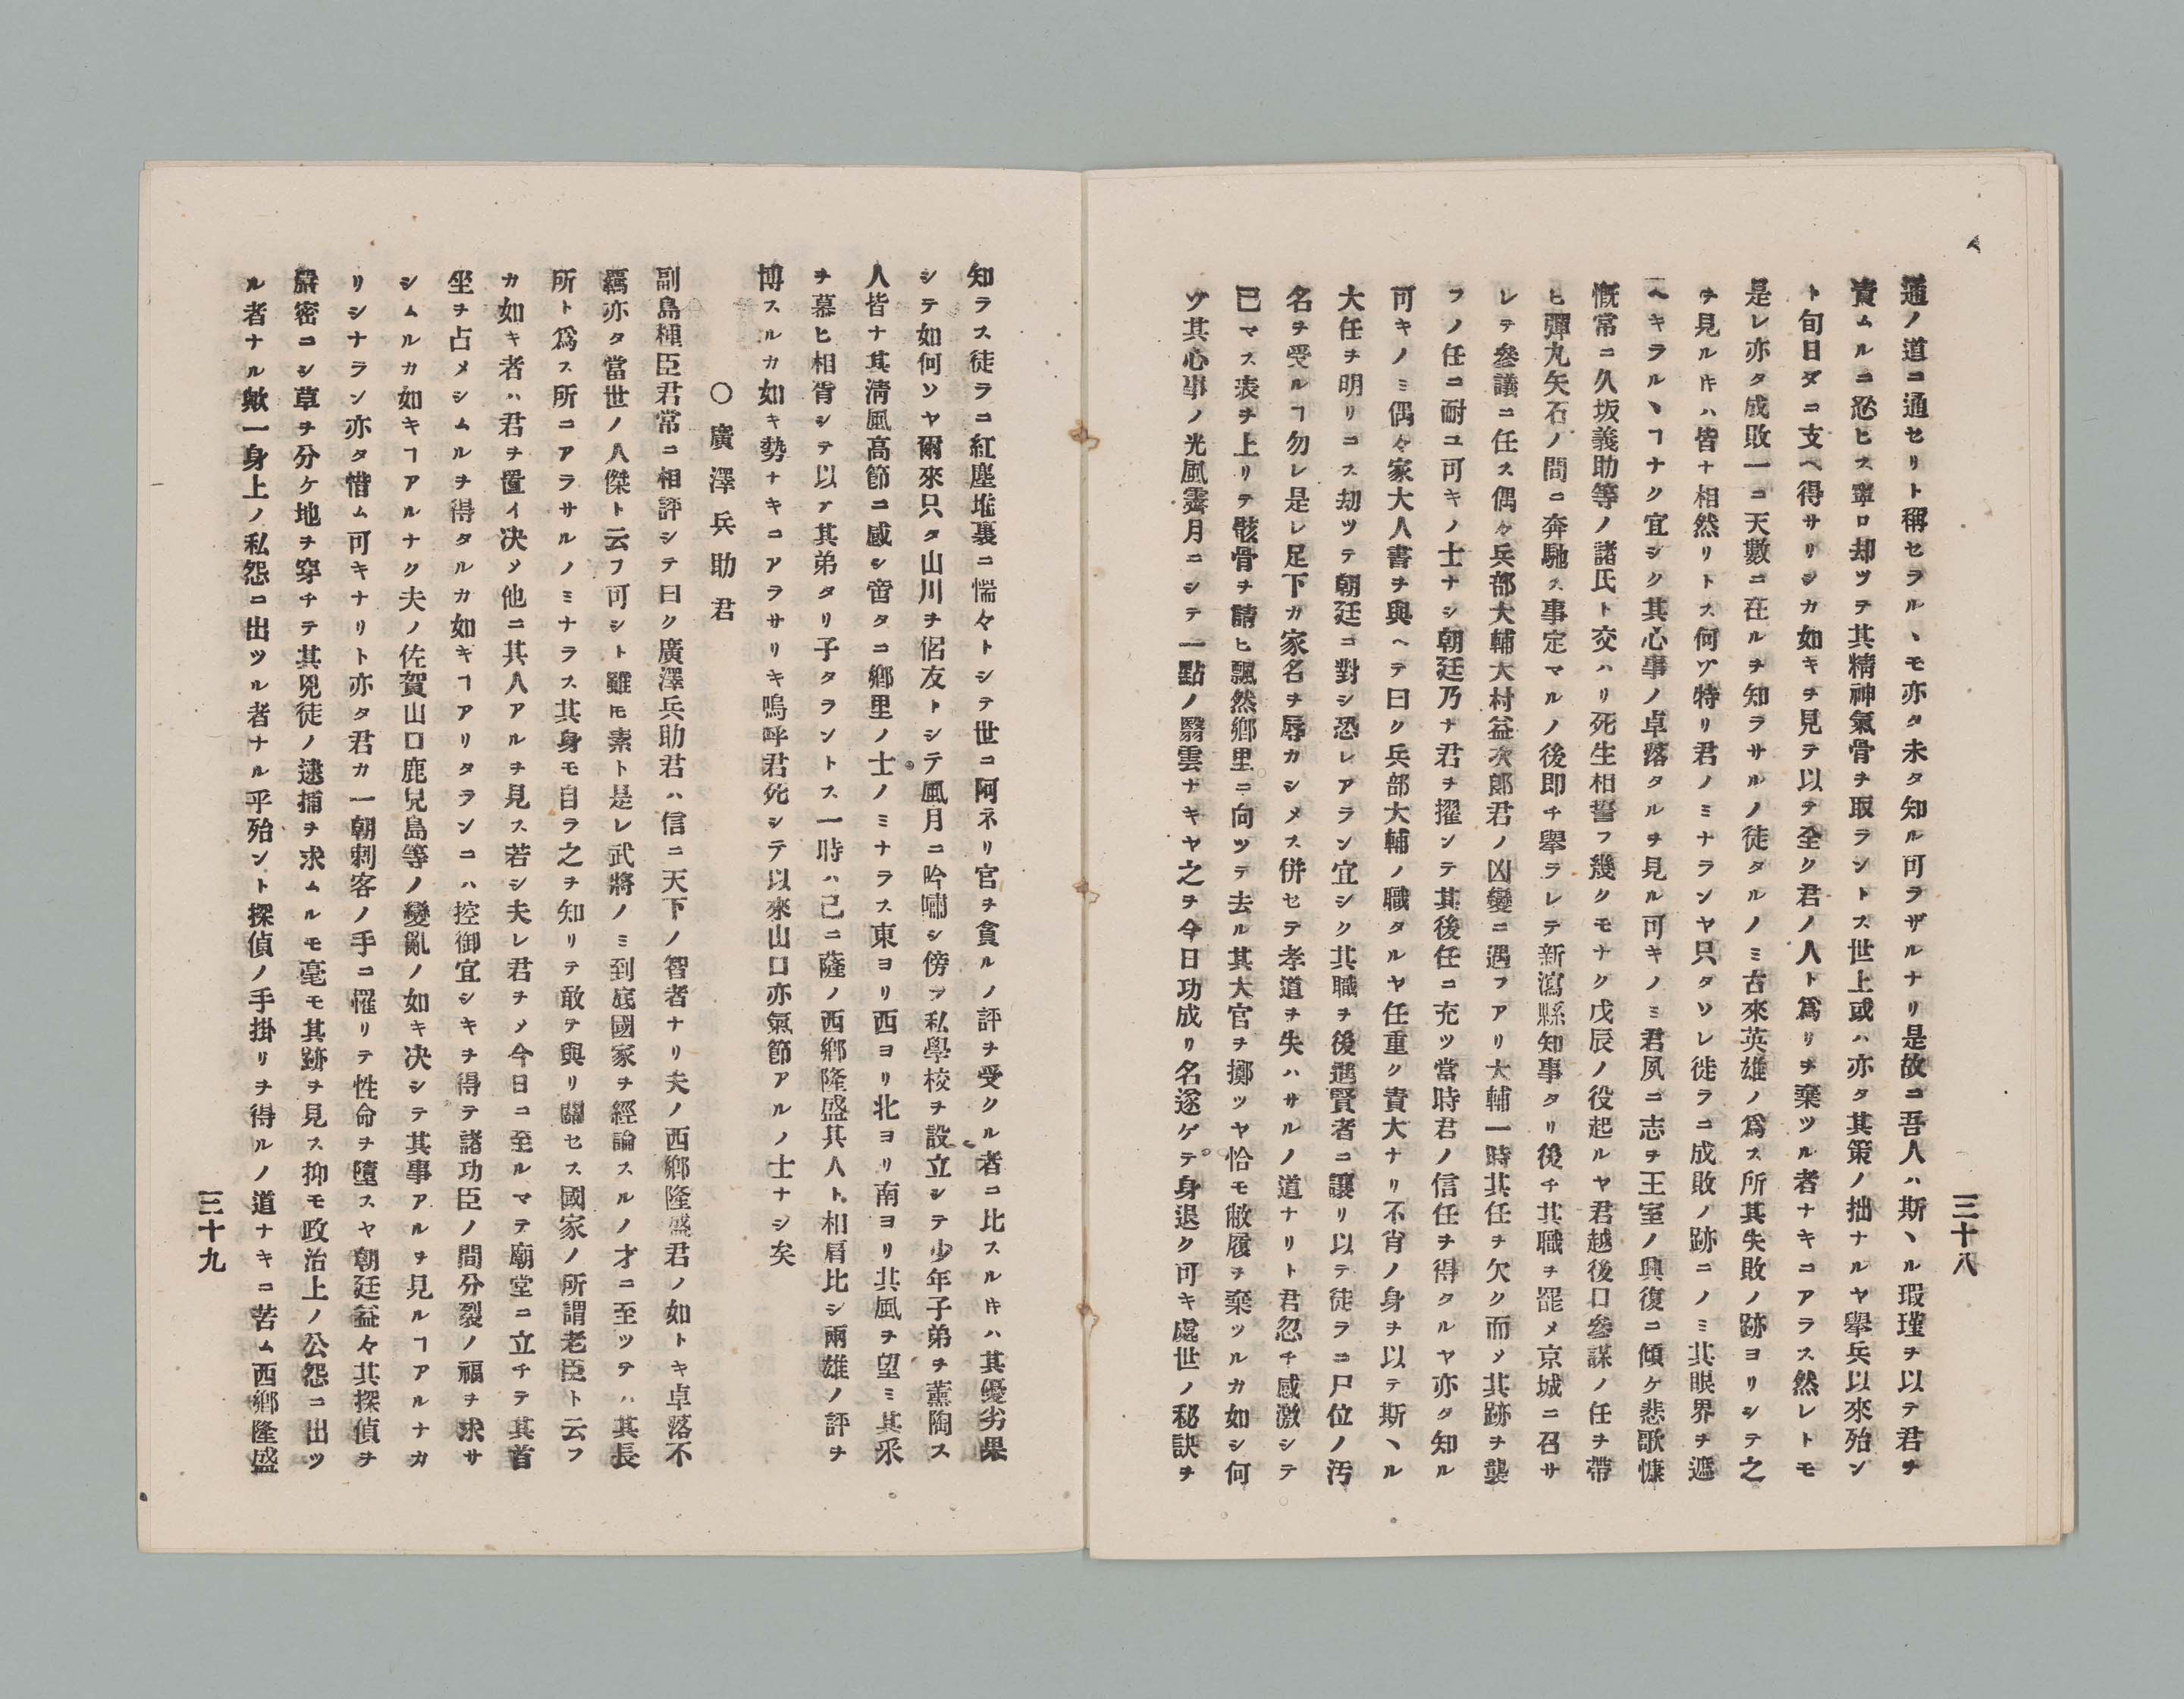 三十八
通ノ道ニ通セリト稱セラルヽモ亦タ未タ知ル可ラザルナリ是故ニ吾人ハ斯ヽル瑕瑾ヲ以テ君ヲ
責ムルニ忍ヒス寧ロ却ツテ其精神氣骨ヲ取ラントス世上或ハ亦タ其策ノ拙ナルヤ擧兵以來殆ン
ト旬日ダニ支ヘ得サリシカ如キヲ見テ以テ全ク君ノ人ト爲リヲ棄ツル者ナキニアラス然レトモ
是レ亦タ成敗一ニ天數ニ在ルヲ知ラサルノ徒タルノミ古來英雄ノ爲ス所其失敗ノ跡ヨリシテ之
ヲ見ルキハ皆ナ相然リトス何ソ特リ君ノミナランヤ只タソレ徒ラニ成敗ノ跡ニノミ其眼界ヲ遮
ヘキラルヽヿナク宜シク其心事ノ卓落タルヲ見ル可キノミ君夙ニ志ヲ王室ノ興復ニ傾ケ悲歌慷
慨常ニ久坂義助等ノ諸氏ト交ハリ死生相誓フ幾クモナク戊辰ノ役起ルヤ君越後口參謀ノ任ヲ帶
ヒ彈丸矢石ノ間ニ奔馳ス事定マルノ後即チ擧ラレテ新瀉縣知事タリ後チ其職ヲ罷メ京城ニ召サ
レテ參議ニ任ス偶々兵部大輔大村益次郎君ノ凶變ニ遇フアリ大輔一時其任ヲ欠ク而ソ其跡ヲ襲
フノ任ニ耐ユ可キノ士ナシ朝廷乃ナ君ヲ擢ンテ其後任ニ充ツ當時君ノ信任ヲ得タルヤ亦タ知ル
可キノミ偶々家大人書ヲ與ヘテ曰ク兵部大輔ノ職タルヤ任重ク責大ナリ不肖ノ身ヲ以テ斯ヽル
大任ヲ明リニス劫ツテ朝廷ニ對シ恐レアラン宜シク其職ヲ後進賢者ニ讓リ以テ徒ラニ尸位ノ汚
名ヲ受ルヿ勿レ是レ足下カ家名ヲ辱カシメス併セテ孝道ヲ失ハサルノ道ナリト君忍チ感激シテ
已マス表ヲ上リテ骸骨ヲ請ヒ飄然鄉里ニ向ツテ去ル其大官ヲ擲ツヤ恰モ敝履ヲ棄ツルカ如シ何
ソ其心事ノ光風霽月ニシテ一點ノ翳雲ナキヤ之ヲ今日功成リ名遂ゲテ身退ク可キ處世ノ秘訣ヲ
知ラス徒ラニ紅塵堆裏ニ惴々トシテ世ニ阿ネリ官ヲ貪ルノ評ヲ受クル者ニ比スルキハ其優劣果
シテ如何ソヤ爾來只タ山川ヲ侶友トシテ風月ニ吟嘯シ傍ラ私學校ヲ設立シテ少年子弟ヲ薰陶ス
人皆ナ其清風高節ニ感シ啻タニ鄉里ノ士ノミナラス東ヨリ西ヨリ北ヨリ南ヨリ其風ヲ望ミ其釆
ヲ慕ヒ相胥シテ以テ其弟タリ子タラントス一時ハ己ニ薩ノ西鄉隆盛其人ト相肩比シ兩雄ノ評ヲ
博スルカ如キ勢ナキニアラサリキ嗚呼君死シテ以來山口亦氣節アルノ士ナシ矣
〇廣澤兵助君
副島種臣君常ニ相評シテ曰ク廣澤兵助君ハ信ニ天下ノ智者ナリ夫ノ西鄉隆盛君ノ如トキ卓落不
羈亦タ當世ノ人傑ト云フ可シト雖モ素ト是レ武將ノミ到底國家ヲ經論スルノ才ニ至ツテハ其長
所ト爲ス所ニアラサルノミナラス其身モ自ラ之ヲ知リテ敢テ與リ關セス國家ノ所謂老臣ト云フ
カ如キ者ハ君ヲ置イ决ソ他ニ其人アルヲ見ス若シ夫レ君ヲソ今日ニ至ルマテ廟堂ニ立チテ其首
坐ヲ占メシムルヲ得タルカ如ギヿアリタランニハ控御宜シキヲ得テ諸功臣ノ間分裂ノ福ヲ求サ
シムルカ如キヿアルナク夫ノ佐賀山口鹿兒島等ノ變亂ノ如キ决シテ其事アルヲ見ルヿアルナカ
リシナラン亦タ惜ム可キナリト亦タ君カ一朝刺客ノ手ニ罹リテ性命ヲ墮スヤ朝廷益々其探偵ヲ
嚴密ニシ草ヲ分ケ地ヲ穿チテ其兇徒ノ逮捕ヲ求ムルモ毫モ其跡ヲ見ス抑モ政治上ノ公怨ニ出ツ
ル者ナル歟一身上ノ私怨ニ出ツル者ナル乎殆ント探偵ノ手掛リヲ得ルノ道ナキニ苦ム西鄉隆盛
三十九